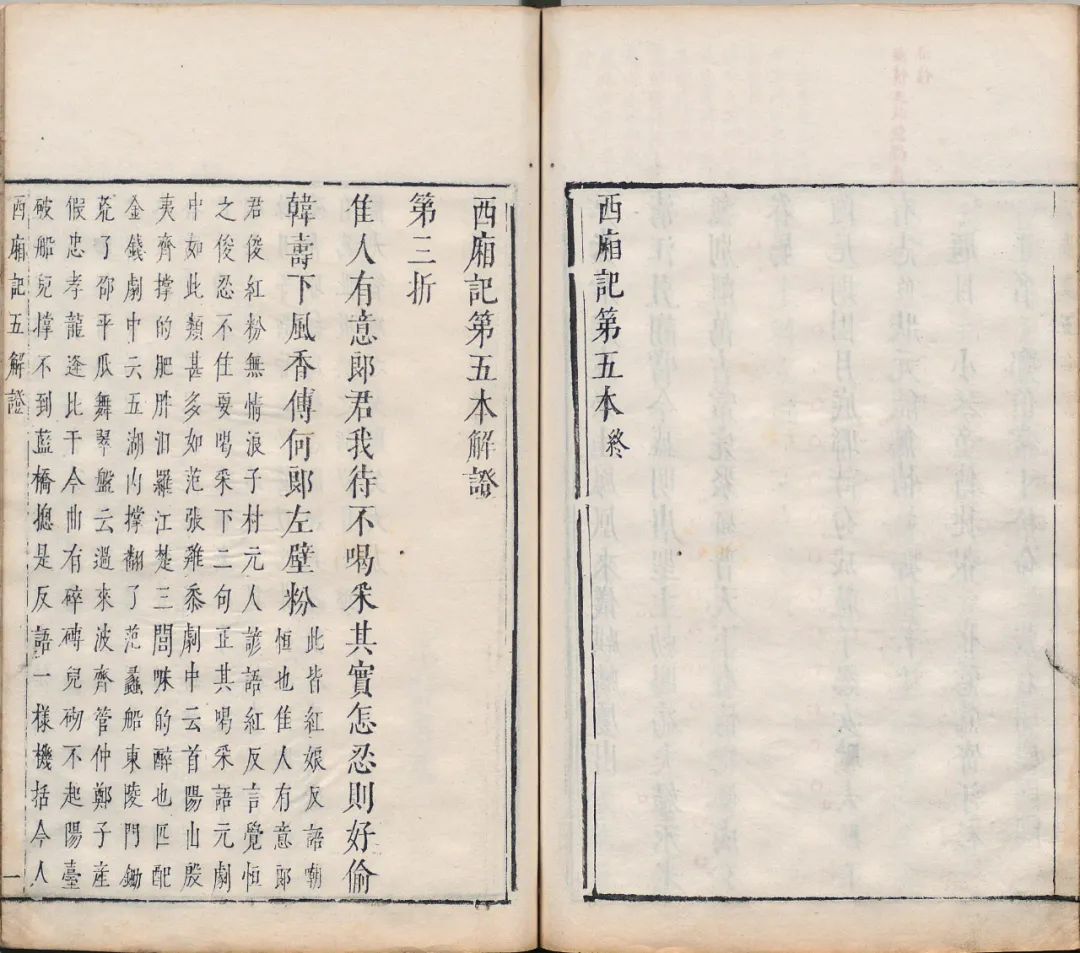 西廂記第五本終
西廂記第五本解證
第三折
佳人有意郎君我待不喝采其實怎忍則好偷
韓壽下風香傅何郎左壁粉
此皆紅娘反語嘲
恒也佳人有意郎
君俊紅粉無情浪子村元人諺語紅反言覺恒
之俊忍不住要喝采下二句正其喝采語元劇
中如此類甚多如范張雞黍劇中云首陽山殷
夷齊撑的肥胖汨羅江楚三閭味的醉也匹配
金錢劇中云五湖内撑翻了范蠡船東陵門鋤
荒了邵平瓜舞翠盤云過來波齊管仲鄭子産
假忠孝龍逢比干今曲有碎磚兒砌不起陽臺
破船兒撑不到藍橋揔是反語一様機括今人
西廂記五解證 一